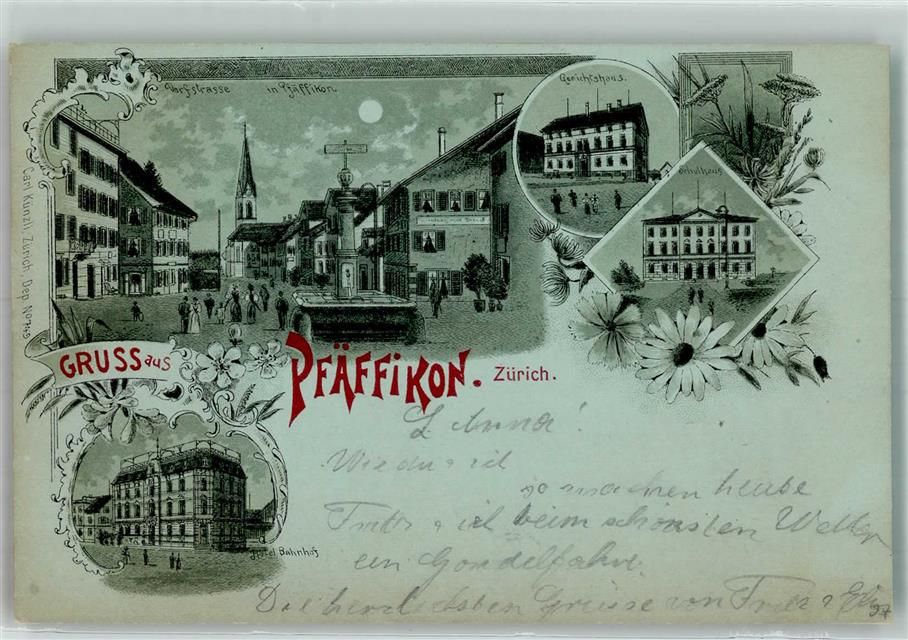 Dorfstrasse in Pfäffikon.
Gerichtshaus.
Schulhaus
Carl Künzli, Zürich, Dep. No 7459
GRUSS aus
PFÄFFIKON. Zürich.
Hôtel Bahnhof
L Anna!
Wie du & ich
so machen heute
Fritz & ich beim schönsten Wetter
ein Gondelfahrt.
Die herzlichsten Grüsse von Fritz &
97